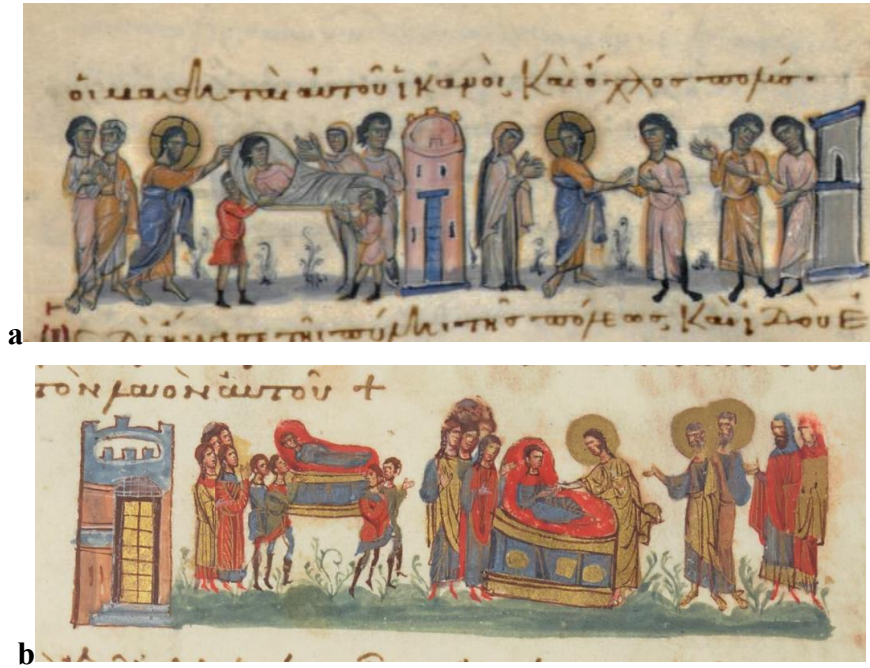 οἱ μαθηταὶ αὐτοῦ ἱκανοὶ, καὶ ὄχλος πολύς·
δὲ ἤγγισε τῆι πύληι τῆς πόλεως, καὶ ἰδοὺ ἐ
a
τὸν λαὸν αὐτοῦ +
b